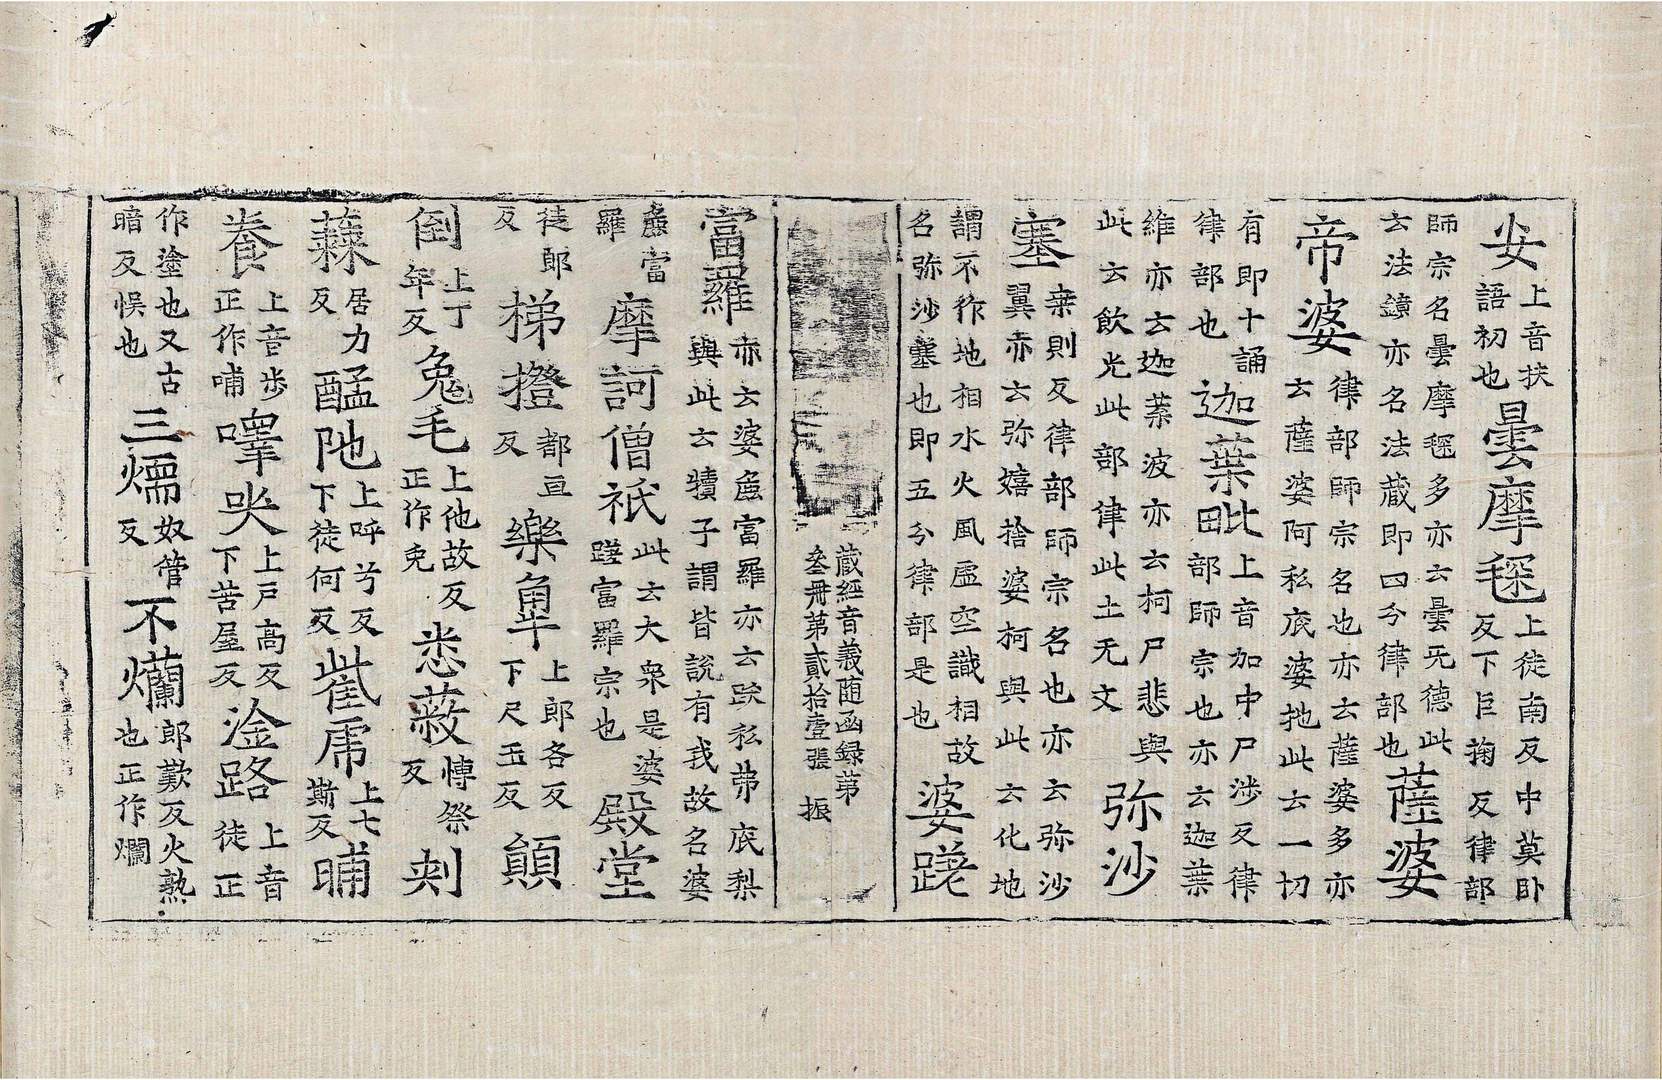 上音扶語初也曇摩毱上徒南反中莫卧反下巨掬反律部
師宗名曇摩毱多亦云曇无德此云法鏡亦名法藏即四分律部也薩婆
帝婆律部師宗名也亦云薩婆多亦云薩婆阿私底婆地此云一切
有即十誦律部也迦葉毗上音加中尸涉反律部師宗也亦云迦葉
維亦云迦葉波亦云柯尸悲與此云飲光此部律此土无文弥沙
塞桒則反律部師宗名也亦云弥沙翼亦云弥嬉捨婆柯與此云化地
謂不作地相水火風虛空識相故名弥沙塞也即五分律部是也婆蹉
藏經音義随函録第叄冊第貳拾壹張 振
富羅亦云婆麁富羅亦云跋私弗底梨與此云犢子謂皆說有我故名婆
麁富羅摩訶僧祇此云大衆是婆蹉富羅宗也殿堂
徒郎反梯橙都亘反樂上郎各反下尺玉反顛
倒上丁年反兔毛上他故反正作兔悉蔽博祭反刾
蕀居力反醘陁上呼兮反下徒何反虒上七斯反晡
養上音步正作哺嘷哭上戶高反下苦屋反淦路上音徒正
作塗也又古暗反悞也三煗奴管反不爛郎歎反火熟也正作爛